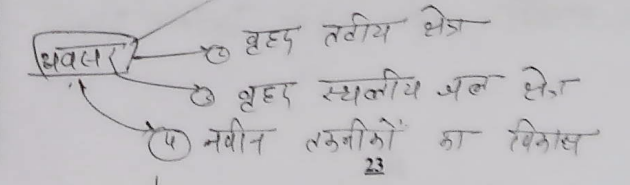 ② वृहद तटीय क्षेत्र
अवसर
③ वृहद स्थलीय जल क्षेत्र
④ नवीन तकनीकों का विकास
23